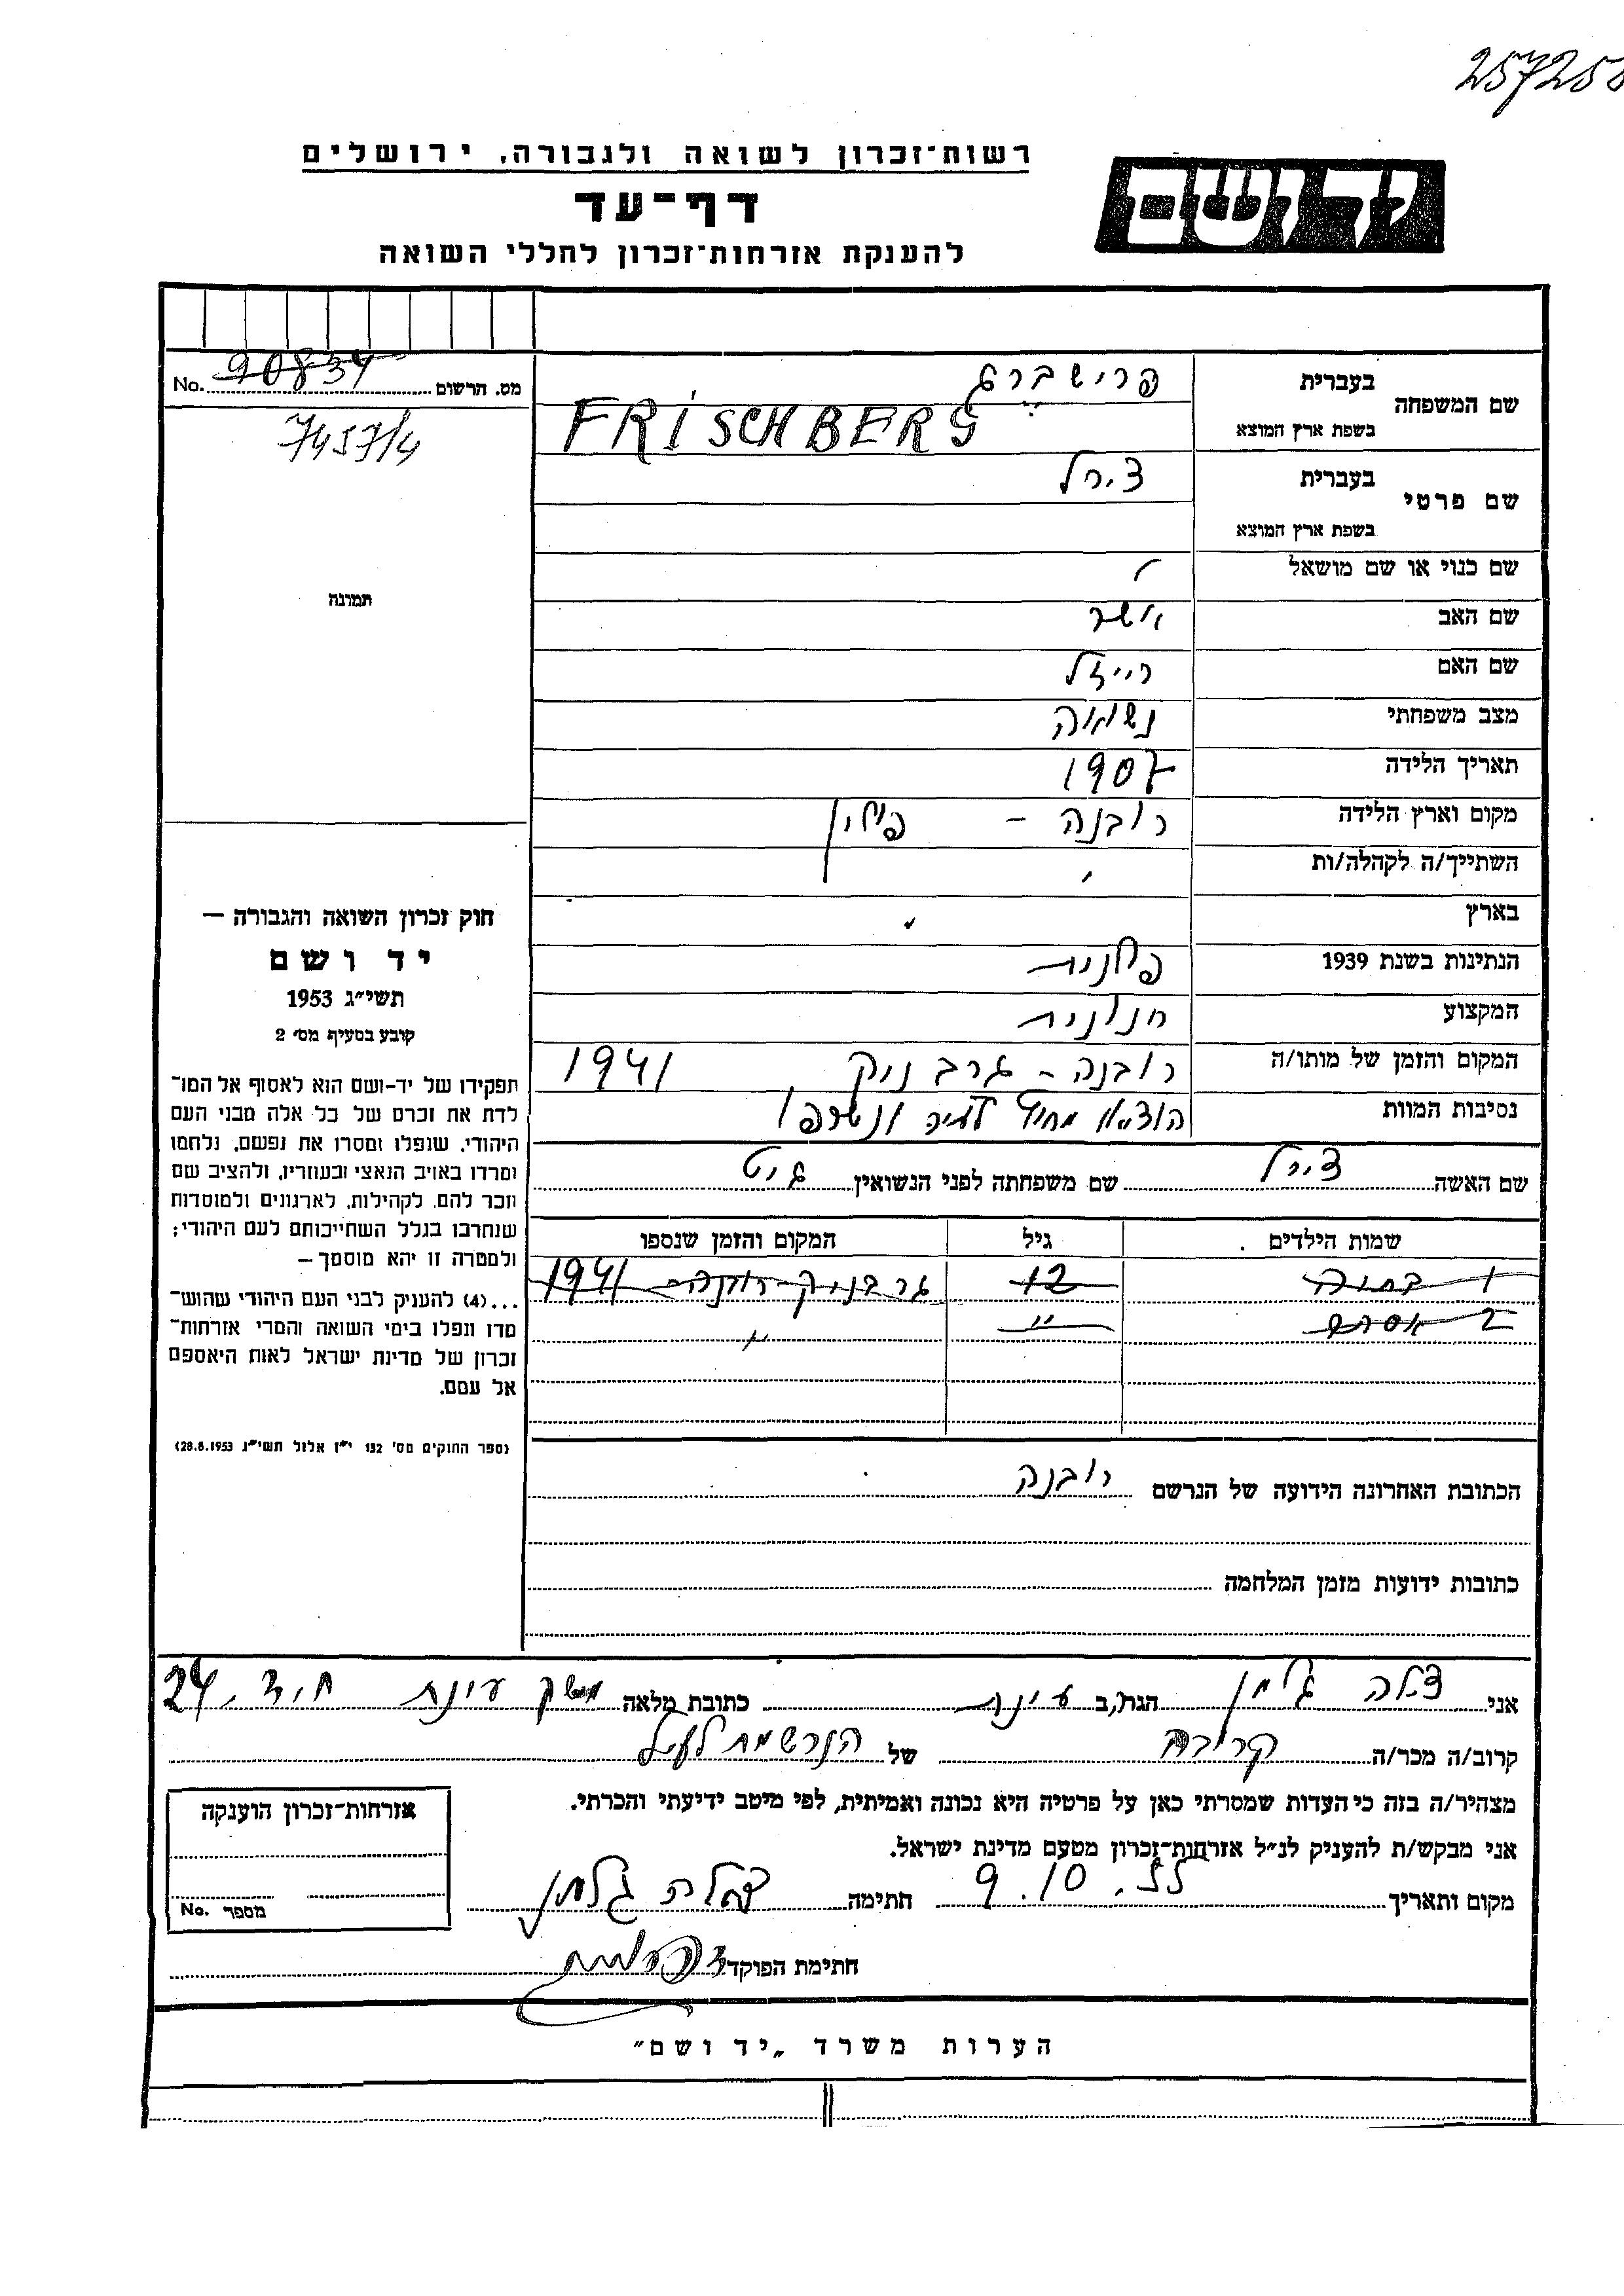 257258
יד ושם
רשות־זכרון לשואה ולגבורה, ירושלים
דף־עד
להענקת אזרחות־זכרון לחללי השואה
שם המשפחה
בעברית פרישברג
בשפת ארץ המוצא FRISCHBERG
שם פרטי
בעברית צירל
בשפת ארץ המוצא
שם כנוי או שם מושאל
שם האב אשר
שם האם רייזל
מצב משפחתי נשואה
תאריך הלידה 1907
מקום וארץ הלידה רובנה - פולין
השתייך/ה לקהלה/ות
בארץ
הנתינות בשנת 1939 פולנית
המקצוע חנונית
המקום והזמן של מותו/ה רובנה - גרבניק 1941
נסיבות המוות הוצאו מחוץ לעיר ונשרפו
שם האשה צירל שם משפחתה לפני הנשואין גיט
שמות הילדים גיל המקום והזמן שנספו
1 בתיה 12 גרבניק - רובנה - 1941
2 אפרים " "
הכתובת האחרונה הידועה של הנרשם רובנה
כתובות ידועות מזמן המלחמה
מס. הרשום 90834 No.
7457/4
תמונה
חוק זכרון השואה והגבורה —
יד ושם
תשי״ג 1953
קובע בסעיף מס׳ 2
תפקידו של יד-ושם הוא לאסוף אל המו־
לדת את זכרם של כל אלה מבני העם
היהודי, שנפלו ומסרו את נפשם, נלחמו
ומרדו באויב הנאצי ובעוזריו, ולהציב שם
וזכר להם, לקהילות, לארגונים ולמוסדות
שנחרבו בגלל השתייכותם לעם היהודי;
ולמטרה זו יהא מוסמך —
...(4) להעניק לבני העם היהודי שהוש־
מדו ונפלו בימי השואה והמרי אזרחות־
זכרון של מדינת ישראל לאות היאספם
אל עמם.
(ספר החוקים מס׳ 132 י״ז אלול תשי״ג 28.8.1953)
אני צילה גלמן הגר/ב עינת כתובת מלאה משק עינת ח.ד. 24
קרוב/ה מכר/ה קרובה של הנרשמת לעיל
מצהיר/ה בזה כי העדות שמסרתי כאן על פרטיה היא נכונה ואמיתית, לפי מיטב ידיעתי והכרתי.
אני מבקש/ת להעניק לנ״ל אזרחות־זכרון מטעם מדינת ישראל.
מקום ותאריך 9.10.55 חתימה צילה גלמן
חתימת הפוקד
אזרחות־זכרון הוענקה
מספר No.
הערות משרד „יד ושם״